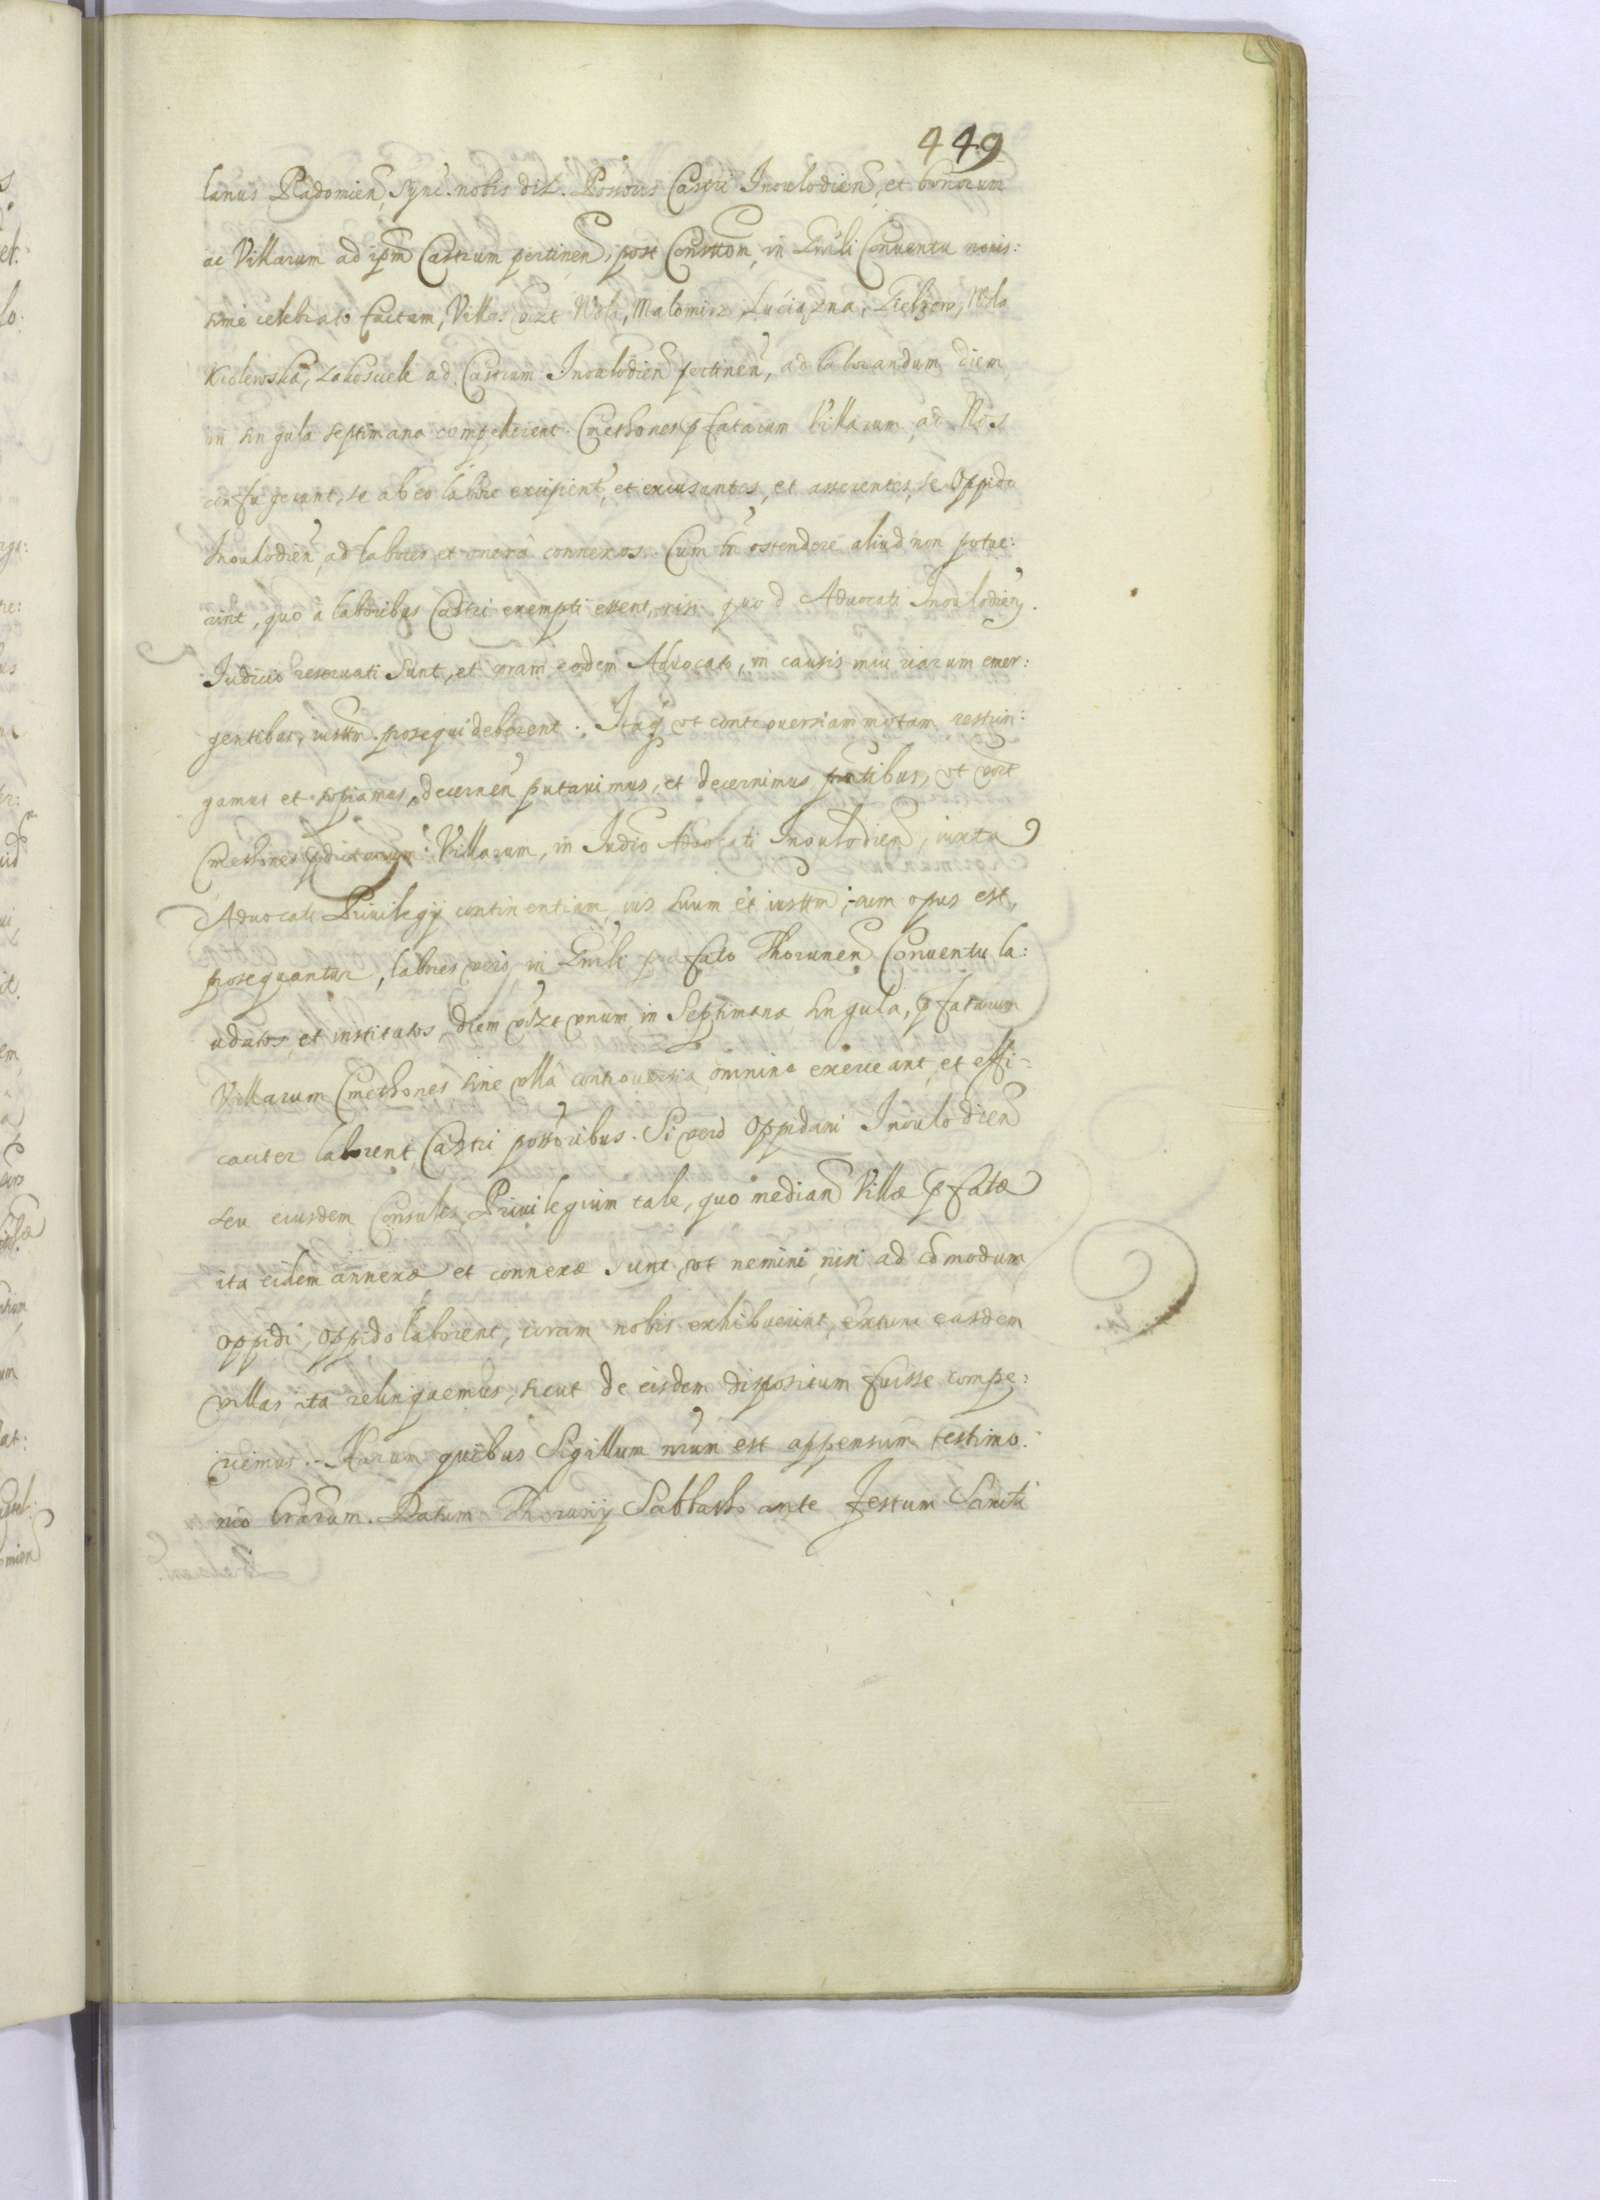 449
lanus Radomien, sync. nobis dil. Possors Castri Inoulodien, et bonorum
ac Villarum ad ipm Castrum pertinen, post Consttom, in Gnali Conuentu nouis:
sime celebrato factam, Villas vizt Wola, Malomirz, Luciązna, Wola
Krolewska, Zakosciele ad Castrum Inoulodien pertinen, ad laborandum diem
in singula septimana compellerent. Cmethones pfatarum Villarum, ad Nos
confugerant, se ab eo labore excipient, et excusantes, et asserentes, se Oppido
Inoulodien, ad labores et onera connexos. Cum tn ostendere aliud non potue:
rint, quo à laboribus Castri exempti essent, nisi quod Aduocati Inoulodien.
Iudicio reseruati sunt, et coram eodem Aduocato, in causis iniuriarum emer:
gentibus, iusttm prosequi deberent: Itaq vt controuersiam motam restrin:
gamus et sopiamus, decernen putauimus, et decernimus pntibus, vt
Cmethones pdictarum Villarum, in Iudio Aduocati Inoulodien, iuxta
Aduocati Priuilegij continentiam, ius suum et iusttm, cum opus est,
prosequantur, labores vero, in Gnali prefato Thorunen Conuentu la:
udatos, et institutos, diem vizt vnum in Septimana singula, pfatarum
Villarum Cmethones sine vlla controuersia omnino exerceant, et effi-
caciter laborent, Castri possoribus. Si verò Oppidani Inoulodien
seu eiusdem Consules, Priuilegium tale, quo median Villæ pfatæ
ita eidem annexæ et connexæ sunt, vt nemini, nisi ad comodum
oppidi, oppido laborent, coram nobis exhibuerint, extunc easdem
villas ita relinquemus, sicut de eisdem dispositum fuisse compe:
riemus. Harum quibus Sigillum nrum est appensum testimo:
nio lrarum. Datum Thorunij Sabbatho ante festum Sancti